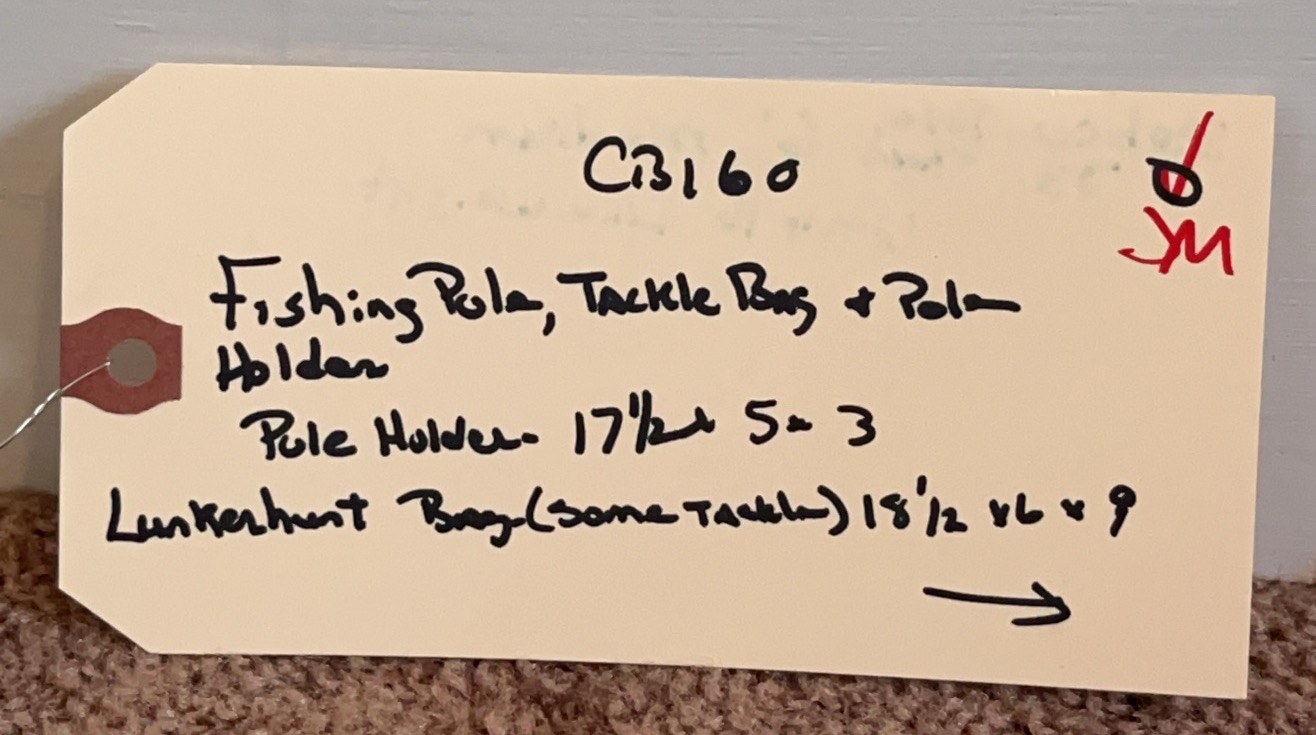 CB160
JM
Fishing Pole, Tackle Bag + Pole
Holder
Pole Holder - 17 1/2 x 5 x 3
Lunkerhunt Bag (Some Tackle) 18 1/2 x 6 x 9
→